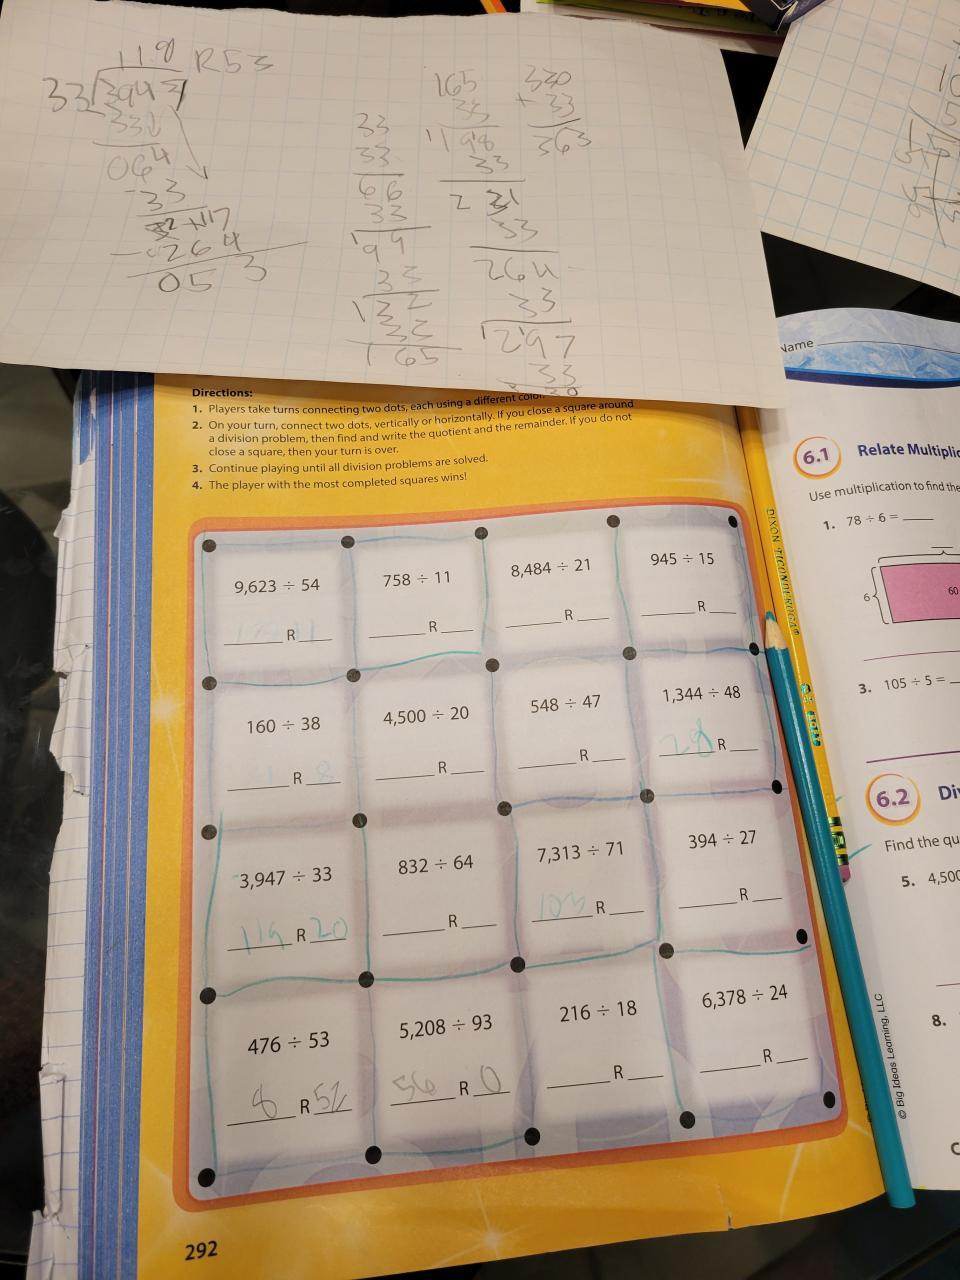 118 R53
33
394
331
064
-33
+117
-264
053
33
33
66
33
199
33
132
33
165
165
33
198
33
231
33
264
33
1297
33
330
+ 33
363
Directions:
1. Players take turns connecting two dots, each using a different color.
2. On your turn, connect two dots, vertically or horizontally. If you close a square around
a division problem, then find and write the quotient and the remainder. If you do not
close a square, then your turn is over.
3. Continue playing until all division problems are solved.
4. The player with the most completed squares wins!
9,623 ÷ 54
758 ÷ 11
8,484 ÷ 21
945 ÷ 15
R
R
R
R
160 ÷ 38
4,500 ÷ 20
548 ÷ 47
1,344 ÷ 48
4 R 8
R
R
28 R
3,947 ÷ 33
832 ÷ 64
7,313 ÷ 71
394 ÷ 27
119 R 20
R
103 R
R
476 ÷ 53
5,208 ÷ 93
216 ÷ 18
6,378 ÷ 24
8 R 52
56 R 0
R
R
292
DIXON TICONDEROGA
Name
6.1 Relate Multiplic
Use multiplication to find the
1. 78 ÷ 6 =
6
60
3. 105 ÷ 5 =
6.2 Di
Find the qu
5. 4,500
8.
© Big Ideas Learning, LLC